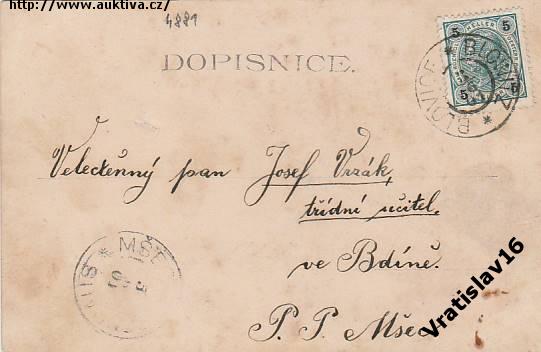 http://www.auktiva.cz/
4881
DOPISNICE.
5 HELLER 5
5 5
BLOVICE
Velectěnný pan Josef Vrzák,
třídní učitel,
ve Bdíně.
P. P. Mšec
* MŠE
Vratislav16